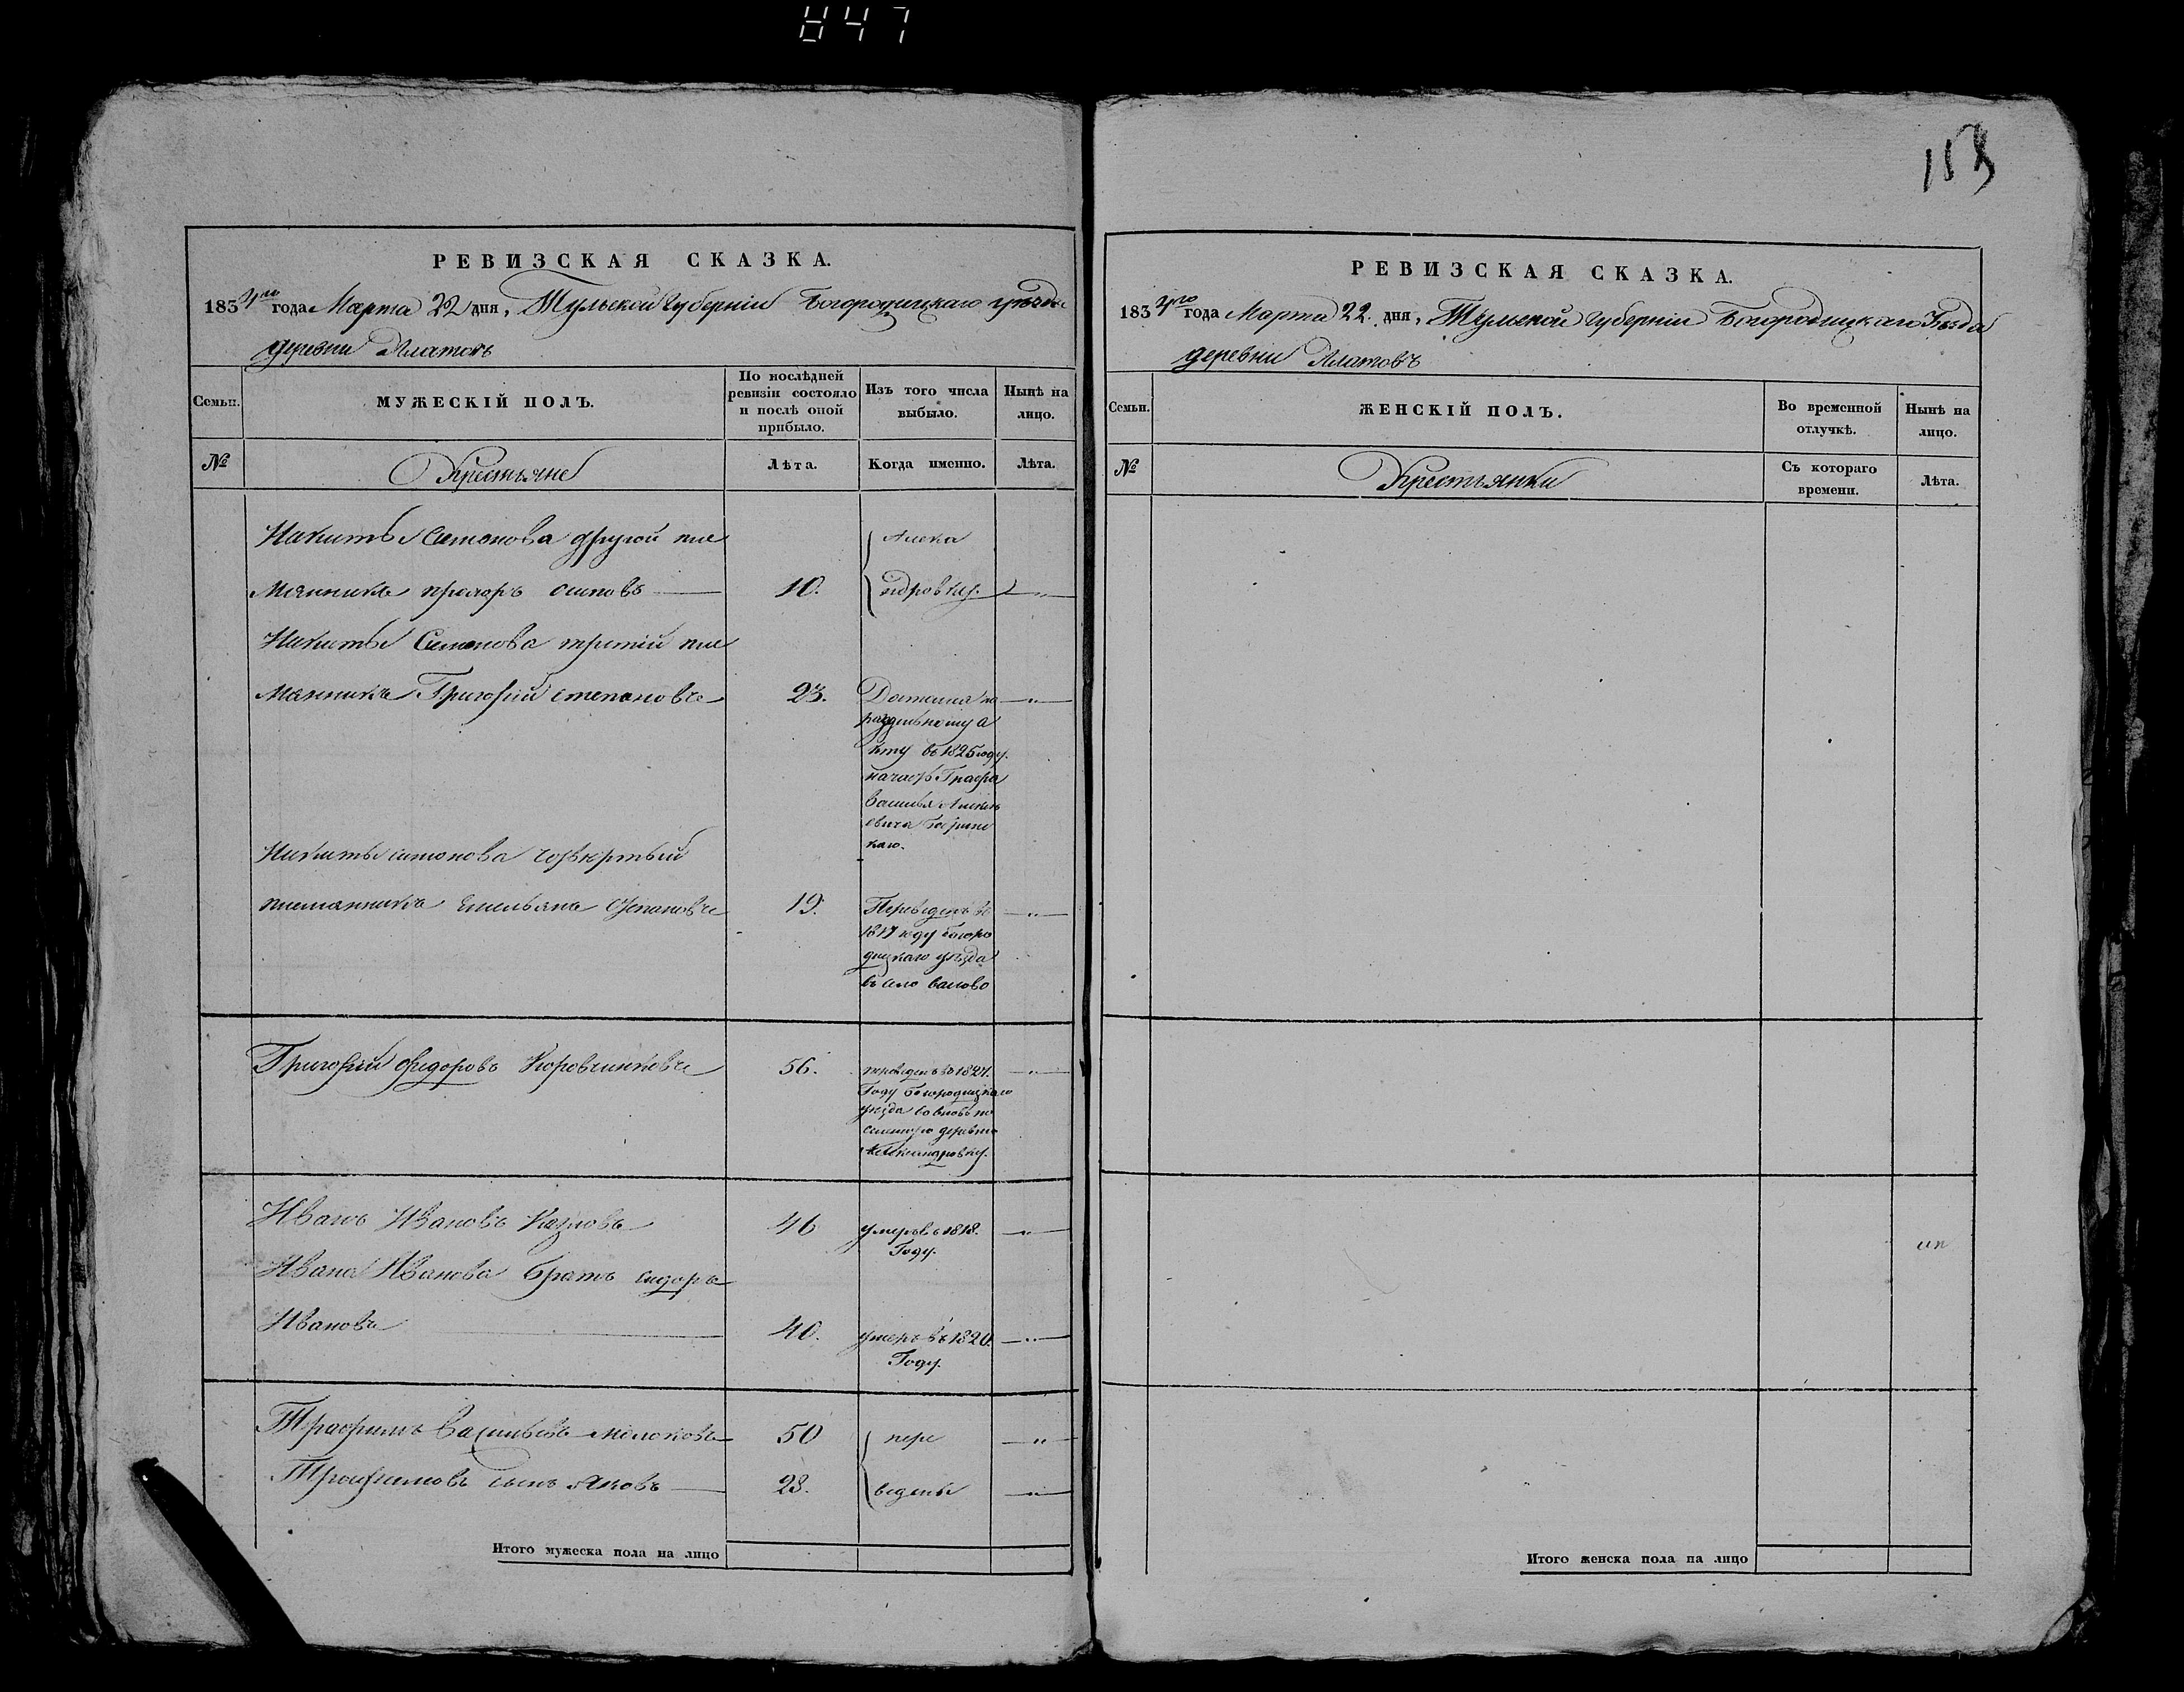 847
153
РЕВИЗСКАЯ СКАЗКА.
1834го года Марта 22 дня, Тульской Губерніи Богородицкаго уѣзда
деревни Платовъ
Семьи.
МУЖЕСКІЙ ПОЛЪ.
По послѣдней ревизіи состояло и послѣ оной прибыло.
Изъ того числа выбыло.
Нынѣ на лицо.
№
Крестьяне
Лѣта.
Когда именно.
Лѣта.
Никиты Семонова другой пле
Алекса
мянникъ прохоръ осиповъ
10.
ндровку.
Никиты Семонова третій пле
мянникъ Григорій степановъ
23.
Достался по
раздѣльному а
кту въ 1825 году.
на часть Графа
василья Алексѣ
евича бобринс
каго.
Никиты симонова четвертый
племянникъ Емельянъ степановъ
19.
Переведенъ въ
1817 году богоро
дицкаго уѣзда
въ село
Григорій федоровъ Коровчинковъ
56.
переведенъ въ 1827.
Году богородицкаго
уѣзда во вновь по
селенную деревню
Александровку.
Иванъ Ивановъ Козловъ
46
умеръ въ 1818.
Году.
Ивана Иванова братъ сидоръ
Ивановъ
40.
умеръ въ 1820.
Году.
Трафимъ Васильевъ Молоковъ
50
пере
Трафимовъ сынъ Яковъ
28.
ведены
Итого мужеска пола на лицо
РЕВИЗСКАЯ СКАЗКА.
1834го года Марта 22. дня, Тульской Губерніи Богородицкаго уѣзда
деревни Платовъ
Семьи.
ЖЕНСКІЙ ПОЛЪ.
Во временной отлучкѣ.
Нынѣ на лицо.
№
Крестьянки
Съ котораго времени.
Лѣта.
Итого женска пола на лицо